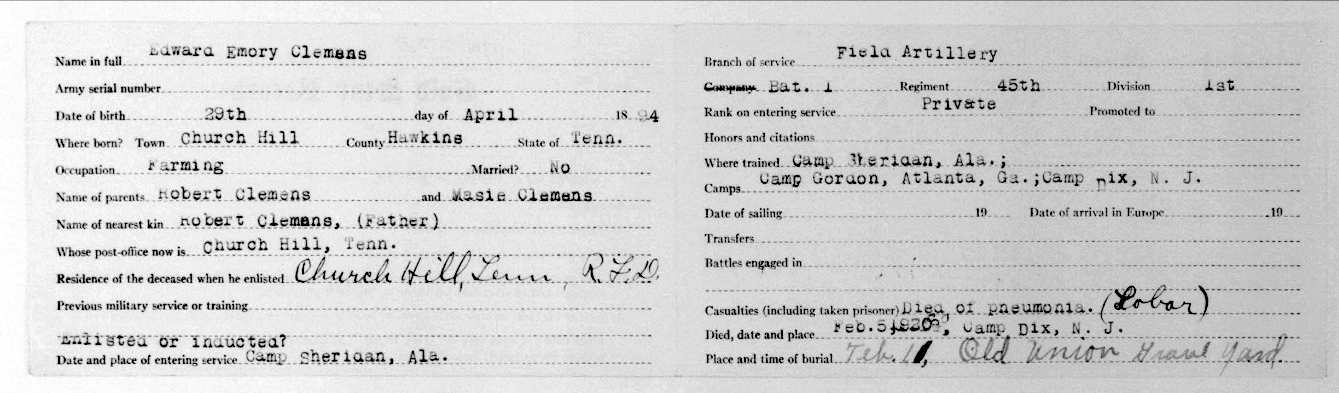 Name in full Edward Emory Clemens
Army serial number
Date of birth 29th day of April 18 94
Where born? Town Church Hill County Hawkins State of Tenn.
Occupation Farming Married? No
Name of parents Robert Clemens and Masie Clemens
Name of nearest kin Robert Clemens, (Father)
Whose post-office now is Church Hill, Tenn.
Residence of the deceased when he enlisted Church Hill, Tenn, R.F.D.
Previous military service or training
Enlisted or inducted?
Date and place of entering service Camp Sheridan, Ala.
Branch of service Field Artillery
Company Bat. 1 Regiment 45th Division 1st
Rank on entering service Private Promoted to
Honors and citations
Where trained Camp Sheridan, Ala.;
Camps Camp Gordon, Atlanta, Ga.;Camp Dix, N. J.
Date of sailing 19 Date of arrival in Europe 19
Transfers
Battles engaged in
Casualties (including taken prisoner) Died of pneumonia. (Lobar)
Died, date and place Feb. 5, Camp Dix, N. J.
Place and time of burial Feb. Old Union Grave Yard.